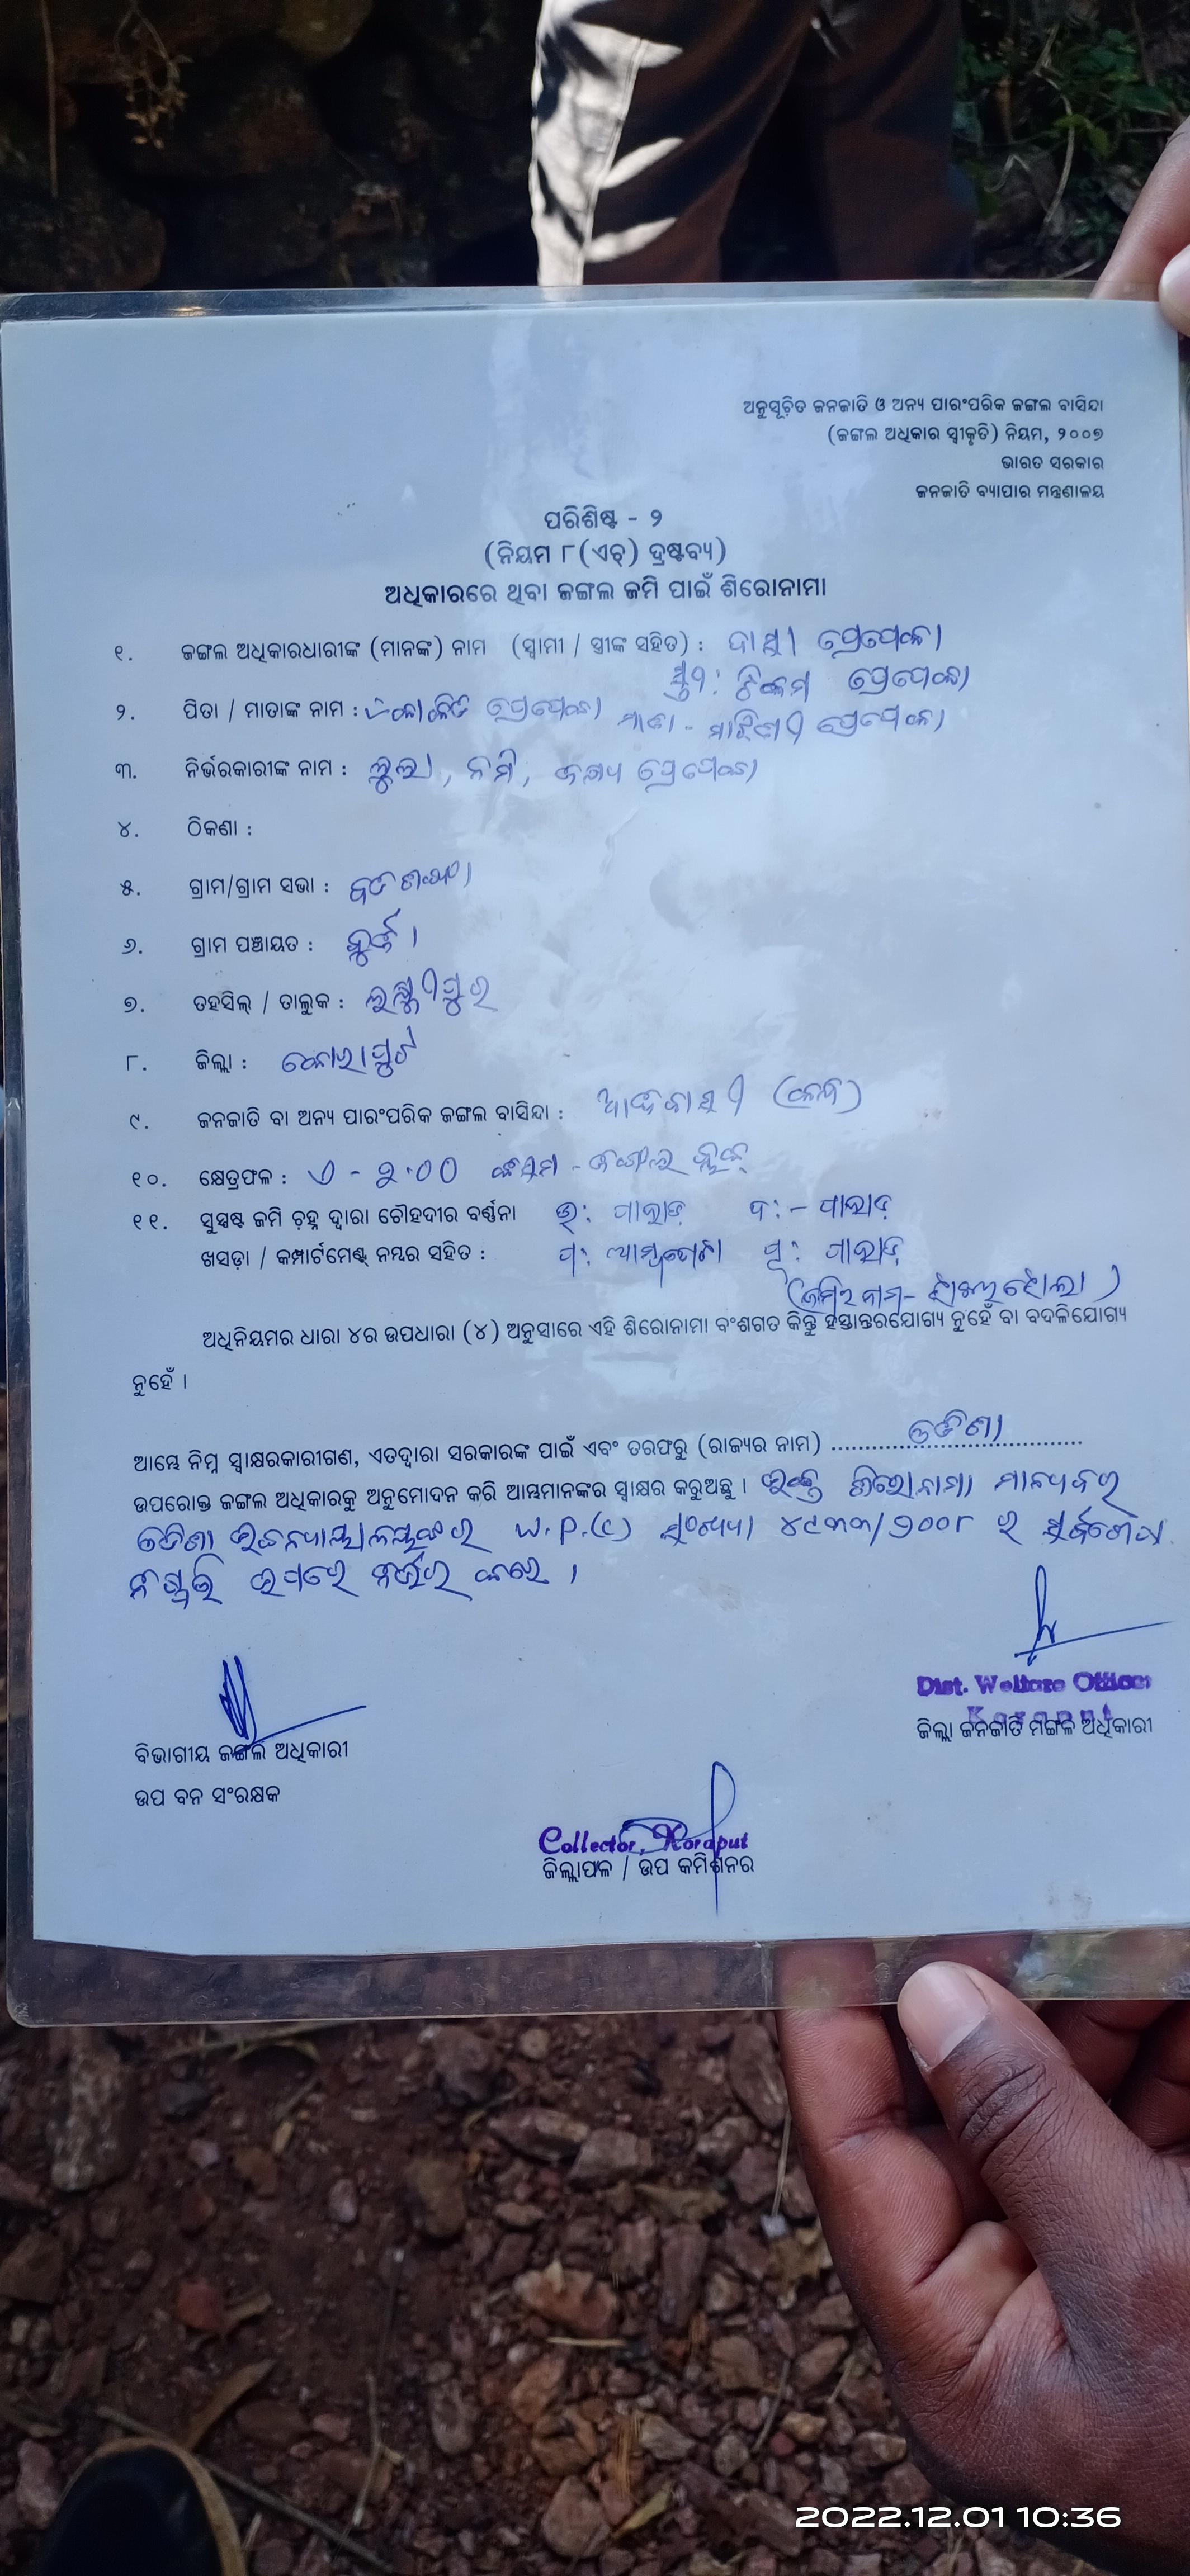 ଅନୁସୂଚିତ ଜନଜାତି ଓ ଅନ୍ୟ ପାରଂପରିକ ଜଙ୍ଗଲ ବାସିନ୍ଦା
(ଜଙ୍ଗଲ ଅଧିକାର ସ୍ୱୀକୃତି) ନିୟମ, ୨୦୦୭
ଭାରତ ସରକାର
ଜନଜାତି ବ୍ୟାପାର ମନ୍ତ୍ରଣାଳୟ
ପରିଶିଷ୍ଟ - ୨
(ନିୟମ ୮(ଏଚ୍) ଦ୍ରଷ୍ଟବ୍ୟ)
ଅଧିକାରରେ ଥିବା ଜଙ୍ଗଲ ଜମି ପାଇଁ ଶିରୋନାମା
୧. ଜଙ୍ଗଲ ଅଧିକାରଧାରୀଙ୍କ (ମାନଙ୍କ) ନାମ (ସ୍ୱାମୀ / ସ୍ତ୍ରୀଙ୍କ ସହିତ) : ଦାସୁ
୨. ପିତା / ମାତାଙ୍କ ନାମ :
୩. ନିର୍ଭରକାରୀଙ୍କ ନାମ :
୪. ଠିକଣା :
୫. ଗ୍ରାମ/ଗ୍ରାମ ସଭା :
୬. ଗ୍ରାମ ପଞ୍ଚାୟତ :
୭. ତହସିଲ୍ / ତାଲୁକ : ଲକ୍ଷ୍ମୀପୁର
୮. ଜିଲ୍ଲା : କୋରାପୁଟ
୯. ଜନଜାତି ବା ଅନ୍ୟ ପାରଂପରିକ ଜଙ୍ଗଲ ବାସିନ୍ଦା : ଆଦିବାସୀ
୧୦. କ୍ଷେତ୍ରଫଳ : ଏ - ୨.୦୦ କିସମ - ଜଙ୍ଗଲ ବ୍ଲକ୍
୧୧. ସୁସ୍ପଷ୍ଟ ଜମି ଚିହ୍ନ ଦ୍ୱାରା ଚୌହଦୀର ବର୍ଣ୍ଣନା ଉ: ପାହାଡ଼ ଦ: - ପାହାଡ଼
ଖସଡ଼ା / କମ୍ପାର୍ଟମେଣ୍ଟ ନମ୍ବର ସହିତ : ପ: ପୂ: ପାହାଡ଼
(ଜମିର ନାମ-
ଅଧିନିୟମର ଧାରା ୪ର ଉପଧାରା (୪) ଅନୁସାରେ ଏହି ଶିରୋନାମା ବଂଶଗତ କିନ୍ତୁ ହସ୍ତାନ୍ତରଯୋଗ୍ୟ ନୁହେଁ ବା ବଦଳିଯୋଗ୍ୟ
ନୁହେଁ ।
ଆମ୍ଭେ ନିମ୍ନ ସ୍ୱାକ୍ଷରକାରୀଗଣ, ଏତଦ୍ୱାରା ସରକାରଙ୍କ ପାଇଁ ଏବଂ ତରଫରୁ (ରାଜ୍ୟର ନାମ) ଓଡିଶା
ଉପରୋକ୍ତ ଜଙ୍ଗଲ ଅଧିକାରକୁ ଅନୁମୋଦନ କରି ଆମ୍ଭମାନଙ୍କର ସ୍ୱାକ୍ଷର କରୁଅଛୁ । ଉକ୍ତ ଶିରୋନାମା ମାନ୍ୟବର
ଓଡିଶା ଉଚ୍ଚନ୍ୟାୟାଳୟଙ୍କର W.P.(C) ସଂଖ୍ୟା ୪୯୩୩/୨୦୦୮ ର ସର୍ବଶେଷ
ନିଷ୍ପତ୍ତି ଉପରେ ନିର୍ଭର କରେ ।
Dist. Welfare Officer
Koraput
ଜିଲ୍ଲା ଜନଜାତି ମଙ୍ଗଳ ଅଧିକାରୀ
ବିଭାଗୀୟ ଜଙ୍ଗଲ ଅଧିକାରୀ
ଉପ ବନ ସଂରକ୍ଷକ
Collector, Koraput
ଜିଲ୍ଲାପାଳ / ଉପ କମିଶନର
2022.12.01 10:36